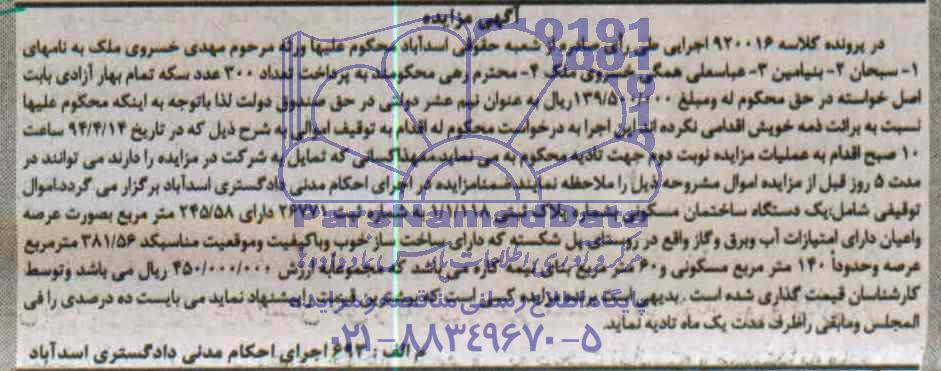 آگهی مزایده
در پرونده کلاسه ۹۲۰۰۱۶ اجرایی طی رأی صادره از شعبه حقوقی اسدآباد محکوم علیها ورثه مرحوم مهدی خسروی ملک به نامهای
۱- سبحان ۲- بنیامین ۳- عباسعلی همگی خسروی ملک ۴- محترم رهی محکومند به پرداخت تعداد ۳۰۰ عدد سکه تمام بهار آزادی بابت
اصل خواسته در حق محکوم له ومبلغ ۱۳۹/۵۰۰/۰۰۰ ریال به عنوان نیم عشر دولتی در حق صندوق دولت لذا باتوجه به اینکه محکوم علیها
نسبت به برائت ذمه خویش اقدامی نکرده اند این اجرا به درخواست محکوم له اقدام به توقیف اموالی به شرح ذیل که در تاریخ ۹۴/۴/۱۴ ساعت
۱۰ صبح اقدام به عملیات مزایده نوبت دوم جهت تادیه محکوم به می نماید معهذا کسانی که تمایل به شرکت در مزایده را دارند می توانند در
مدت ۵ روز قبل از مزایده اموال مشروحه ذیل را ملاحظه نمایند ضمنا مزایده در اجرای احکام مدنی دادگستری اسدآباد برگزار می گردد.اموال
توقیفی شامل:یک دستگاه ساختمان مسکونی بشماره پلاک ثبتی ۱/۱/۱۱۸ به شماره ثبت ۲۶۷۷۱ دارای ۲۴۵/۵۸ متر مربع بصورت عرصه
واعیان دارای امتیازات آب وبرق وگاز واقع در روستای پل شکسته که دارای ساخت ساز خوب وباکیفیت وموقعیت مناسبکد ۳۸۱/۵۶ مترمربع
عرصه وحدوداً ۱۴۰ متر مربع مسکونی و ۶۰ متر مربع بنای نیمه کاره می باشد که مجموعا به ارزش ۴۵۰/۰۰۰/۰۰۰ ریال می باشد وتوسط
کارشناسان قیمت گذاری شده است . بدیهی است برنده مزایده کسی است که بیشترین قیمت را پیشنهاد نماید می بایست ده درصدی را فی
المجلس ومابقی راظرف مدت یک ماه تادیه نماید.
م الف : ۶۹۳ اجرای احکام مدنی دادگستری اسدآباد
ParsNamadData
پایگاه اطلاع رسانی مناقصه و مزایده
۰۲۱-۸۸۳۴۹۶۷۰-۵